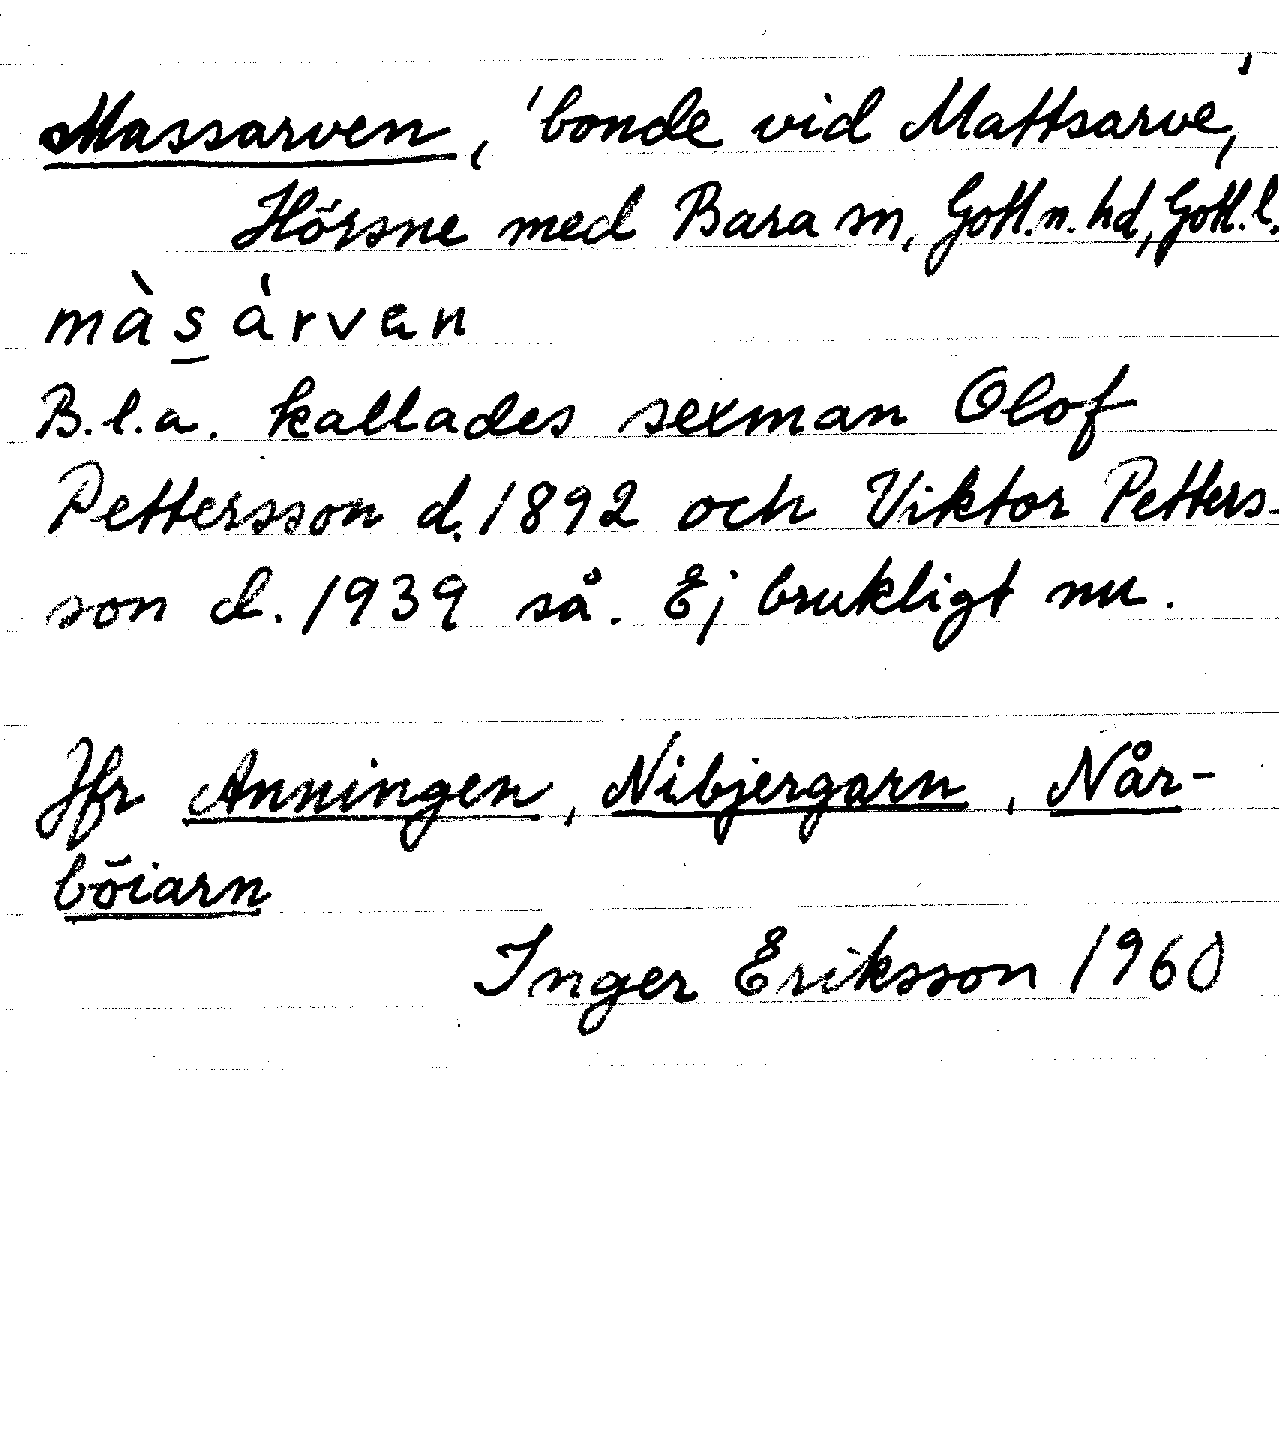 Massarven, 'bonde vid Mattsarve',
Hörsne med Bara sn, Gotl. n. hd, Gotl. l.
màs̲árvan
B.l.a. kallades sexman Olof
Pettersson d. 1892 och Viktor Petters-
son d. 1939 så. Ej brukligt nu.
Jfr Anningen, Nibjergarn, När-
böiarn
Inger Eriksson 1960